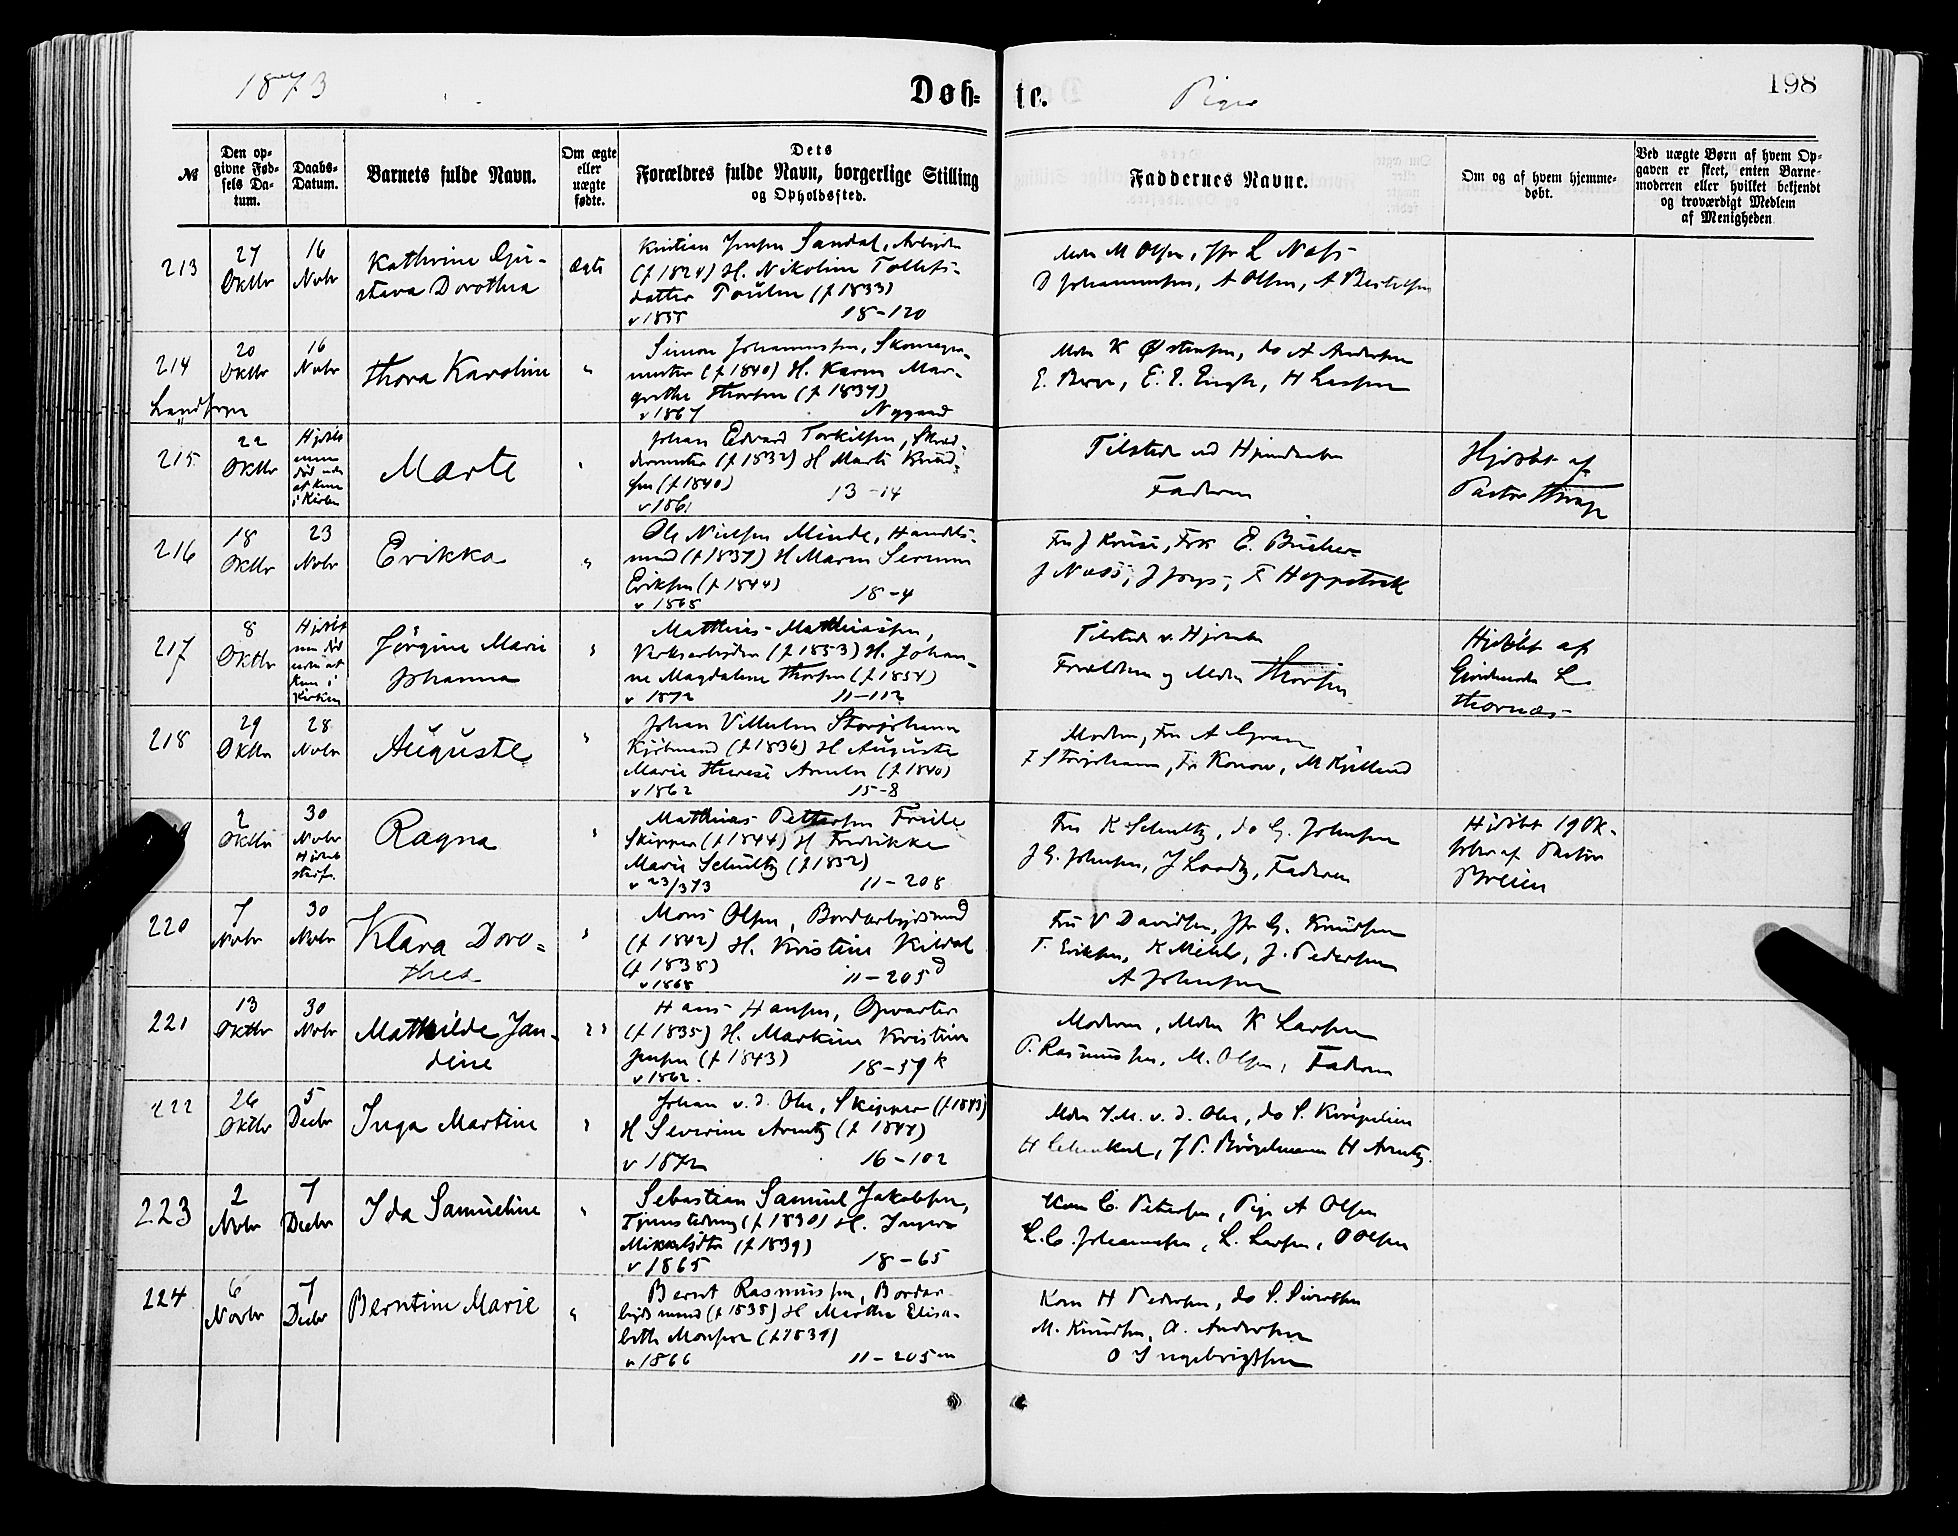 1873
Døb=
te.
198
№
Den op=
givne Fød=
sels Da=
tum.
Daabs=
Datum.
Barnets fulde Navn.
Om ægte
eller
uægte
fødte.
Dets
Forældres fulde Navn, borgerlige Stilling
og Opholdssted.
Faddernes Navne.
Om og af hvem hjemme=
døbt.
Ved uægte Børn af hvem Op=
gaven er skeet, enten Barne=
moderen eller hvilket bekjendt
og troværdigt Medlem
af Menigheden.
213
27
Oktbr
16
Novbr
Kathrine Gju-
stava Dorothea
Ægte
Kristian Jensen Sandal, Arbejder
(f 1824) H. Nikoline Tollefs-
datter Poulsen (f 1833)
v 1855 18-120
Mdm M Olsen, Jfr L Næss
D Johannessen, A Olsen, A
214
20
Oktbr
16
Novbr
Thora Karoline
"
Simon Johannessen, Skomager-
mester (f 1840) H. Karen Mar-
grethe Thorsen (f 1837)
v 1867 Nygaard
Mdm K Østensen, do A Andersen
E. E. E. Engh, H Larsen
215
22
Oktbr
Hjdøbt
men
død uden
at kom
i Kirken
Marte
"
Johan Edvard Torkilsen, Skræd-
dermester (f 1832) H Marte Knud-
sen (f 1840) 13-14
v 1861
Tilstede ved Hjemdaaben
Faderen
Hjdøbt af
Pastor Thrap
216
18
Oktbr
23
Novbr
Erikka
"
Ole Nielsen Minde, Handels-
mand (f 1837) H Maren Serene
Eriksen (f 1844) 18-4
v 1868
Fru J Kruse, Frk E. Bücher
J Næss, J, F Hopstock
217
8
Oktbr
Hjdøbt
men død
uden at
kom i
Kirken
Jørgine Marie
Johanna
"
Matthias Matthiassen,
Værksarbeider (f 1853) H. Johan-
ne Magdalene Thorsen (f 1854)
v 1872 11-112
Tilstede v. Hjdaab
Forældrene og Mdm Thorsen
Hjdøbt af
Gjordemoder L
Thornæs
218
29
Oktbr
28
Novbr
Auguste
"
Johan Vilhelm Storjohann
Kjøbmand (f 1836) H Auguste
Marie Therese Arneln (f 1840)
v 1862 15-8
Moderen, Fru A Gran
F Storjohann, Fr Konow, M Kjelland
2
Oktbr
30
Novbr
Hjdøbt
stadf.
Ragna
"
Matthias Pettersen Friele
Skipper (f 1844) H Fredrikke
Marie Schultz (f 1852)
v 23/3 73 11-208
Fru K Schultz, do G. Johnsen
J G. Johnsen, J Loodtz, Faderen
Hjdøbt 19 Ok-
tober af Pastor
Breien
220
7
Novbr
30
Novbr
Klara Doro-
thea
"
Mons Olsen, Bordarbejdsmand
(f 1842) H. Kristine Kildal
(f 1838) 11-205 d
v 1868
Fru V Davidsen, Jfr G. Knudsen
T. Eriksen, K Mehl, J. Pedersen
A Johnsen
221
13
Oktbr
30
Novbr
Mathilde Jan-
dine
"
Hans Hansen, Opvarter
(f 1835) H. Martine Kristine
Jensen (f 1843) 18-57 k
v 1862.
Moderen, Mdm K Larsen
P. Rasmussen, M. Olsen, Faderen
222
26
Oktbr
5
Decbr
Inga Martine
"
Johan v. d. Ohe, Skipper (f 1843)
H Severine Arentz (f 1844)
v 1872 16-102
Mdm J. M. v. d. Ohe, do S.
H, J P. Brögelmann H Arentz.
223
2
Novbr
7
Decbr
Ida Samueline
"
Sebastian Samuel Jakobsen,
(f 1830) H. Inger
Mikkelsdtr (f 1839)
v 1865 18-65
Kone C. Petersen, Pige A Olsen
L. C. Johannessen, L. Larsen, O Olsen
224
6
Novbr
7
Decbr
Berntine Marie
"
Bernt Rasmussen, Bordar-
bejdsmand (f 1835) H Martha Elisa-
beth Monsen (f 1837)
v 1866 11-205 m
Kone H Pedersen, do S. Sivertsen
M. Knudsen, A. Andersen
O Ingebrigtsen